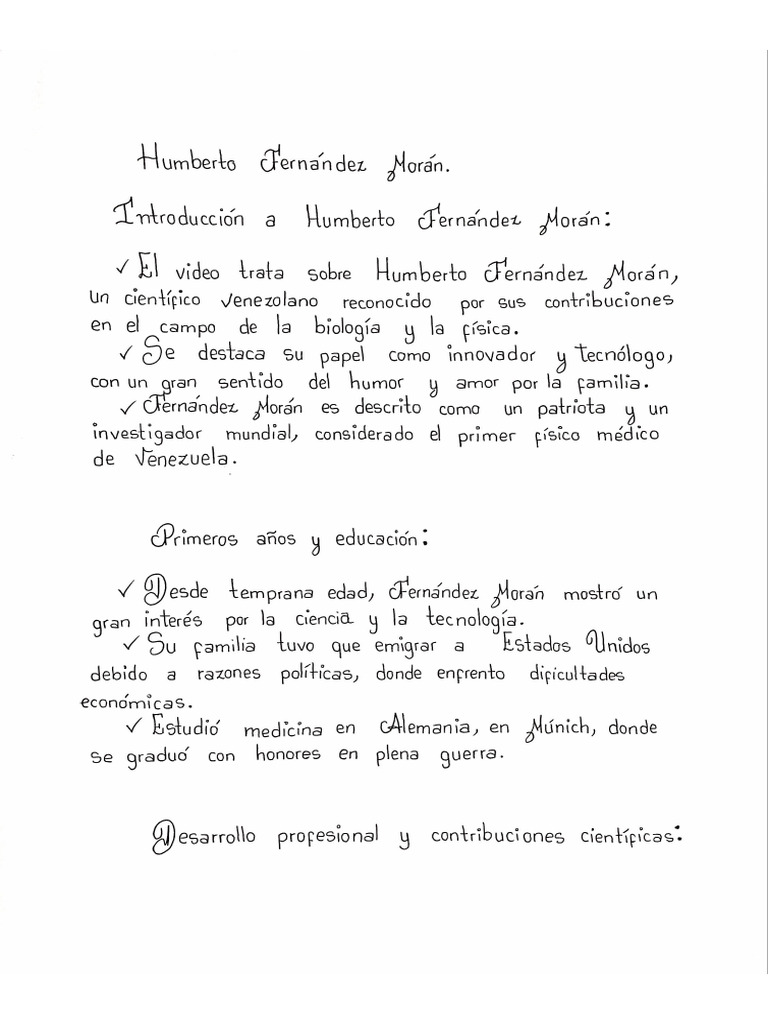 Humberto Fernández Morán.
Introducción a Humberto Fernández Morán:
✓ El video trata sobre Humberto Fernández Morán,
un científico venezolano reconocido por sus contribuciones
en el campo de la biología y la física.
✓ Se destaca su papel como innovador y tecnólogo,
con un gran sentido del humor y amor por la familia.
✓ Fernández Morán es descrito como un patriota y un
investigador mundial, considerado el primer físico médico
de Venezuela.
Primeros años y educación:
✓ Desde temprana edad, Fernández Morán mostró un
gran interés por la ciencia y la tecnología.
✓ Su familia tuvo que emigrar a Estados Unidos
debido a razones políticas, donde enfrento dificultades
económicas.
✓ Estudió medicina en Alemania, en Múnich, donde
se graduó con honores en plena guerra.
Desarrollo profesional y contribuciones científicas: